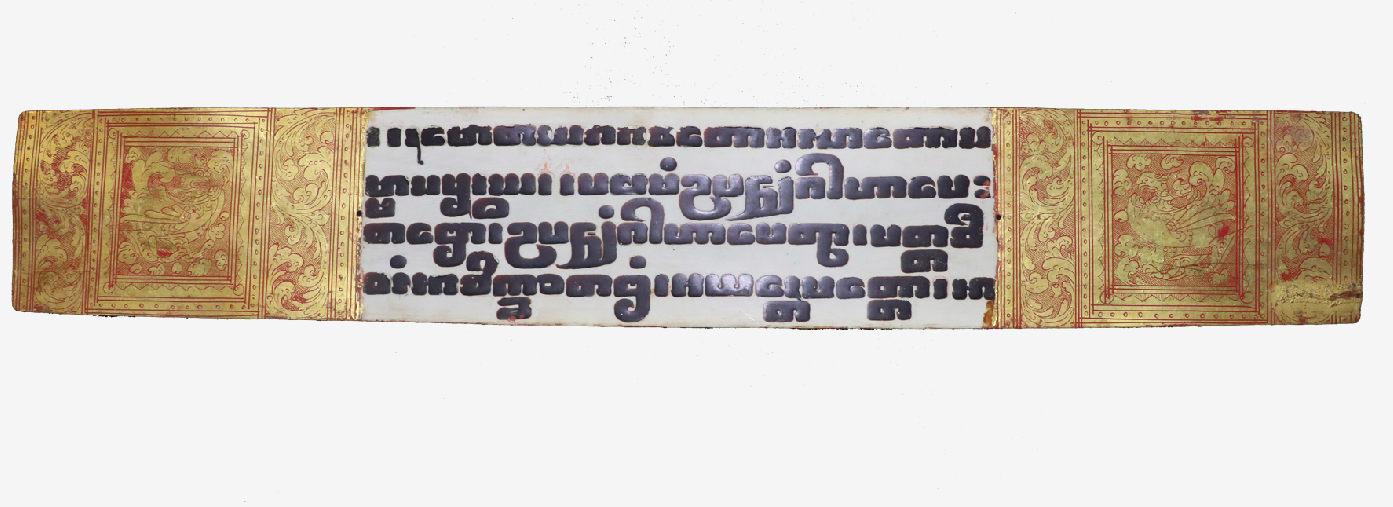 ။ ။နမောတဿဘဂဝတောအရဟတောသ
မ္မာသမ္ဗုဒ္ဓဿ။ ။ပထမံဥပဇ္ဈံဂါဟာပေ
တဗ္ဗော။ဥပဇ္ဈံဂါဟာပေတွာ။ပတ္တစီ
ဝရံအာစိက္ခိတဗ္ဗံ။အယန္တေပတ္တော။အာ